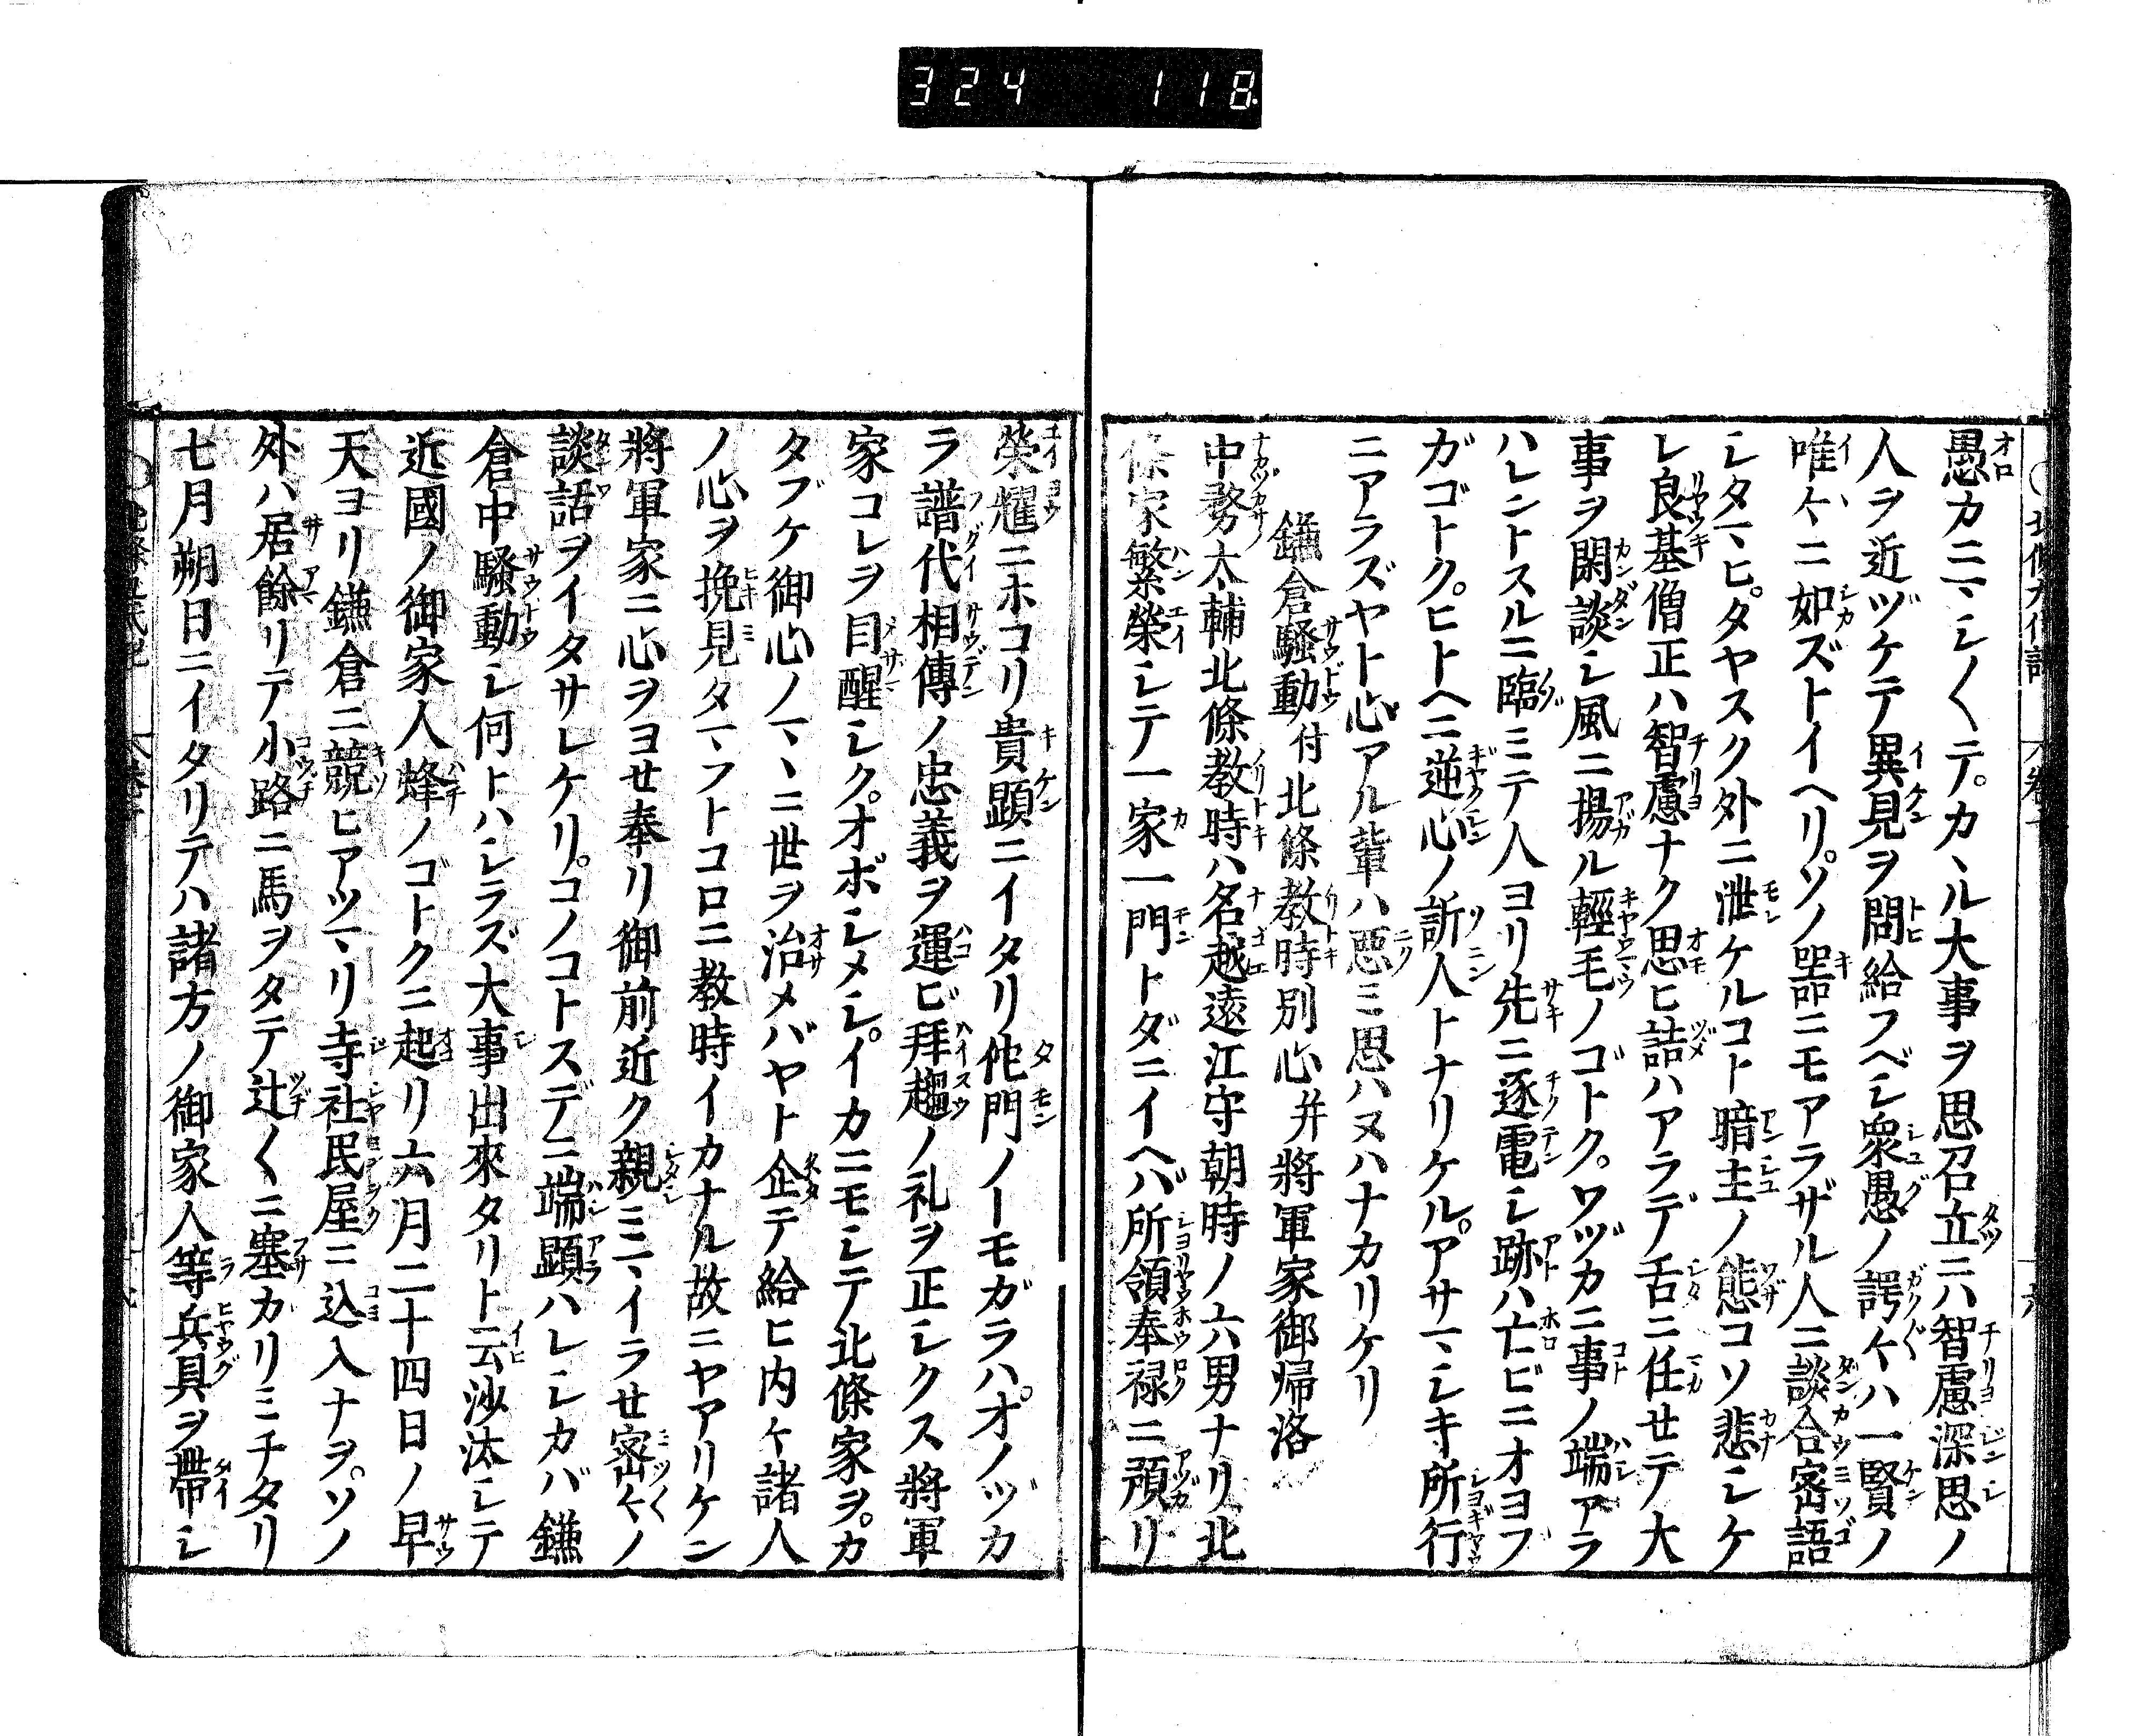 324 118
愚カニマシ〱テ。カヽル大事ヲ思召立ニハ智慮深思ノ
人ヲ近ヅケテ異見ヲ問給フベシ衆愚ノ諤々ハ一賢ノ
唯々ニ如ズトイヘリ。ソノ器ニモアラザル人ニ談合密語
シタマヒ。タヤスク外ニ泄ケルコト暗主ノ態コソ悲シケ
レ良基僧正ハ智慮ナク思ヒ詰ハアラデ舌ニ任セテ大
事ヲ閑談シ風ニ揚ル輕毛ノゴトク。ワヅカニ事ノ端アラ
ハレントスルニ臨ミテ人ヨリ先ニ逐電シ跡ハ亡ビニオヨブ
ガゴトク。ヒトヘニ逆心ノ訴人トナリケル。アサマシキ所行
ニアラズヤト心アル輩ハ惡ミ思ハヌハナカリケリ
鎌倉騷動付北條教時別心并將軍家御帰洛
中務太輔北條教時ハ名越遠江守朝時ノ六男ナリ北
條家繁榮シテ一家一門トダニイヘバ所領奉禄ニ預リ
榮耀ニホコリ貴顕ニイタリ佗門ノ一モガラハ。オノヅカ
ラ譜代相傳ノ忠義ヲ運ビ拜趨ノ礼ヲ正シクス將軍
家コレヲ目醒シク。オボシメシ。イカニモシテ北條家ヲ。カ
タブケ御心ノマヽニ世ヲ治メバヤト企テ給ヒ内々諸人
ノ心ヲ挽見タマフトコロニ教時イカナル故ニヤアリケン
將軍家ニ心ヲヨセ奉リ御前近ク親ミマイラセ密々ノ
談話ヲイタサレケリ。コノコトスデニ端顕ハレシカバ鎌
倉中騷動シ何トハシラズ大事出來タリト云沙汰シテ
近國ノ御家人蜂ノゴトクニ起リ六月二十四日ノ早
天ヨリ鎌倉ニ競ヒアツマリ寺社民屋ニ込入ナヲ。ソノ
外ハ居餘リテ小路ニ馬ヲタテ辻〱ニ塞カリミチタリ
七月朔日ニイタリテハ諸方ノ御家人等兵具ヲ帶シ